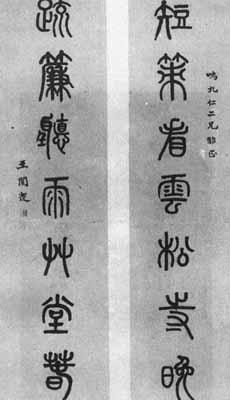 短策看雲松寺晚
仁二兄雅正
疏簾聽雨艸堂春
王闓運